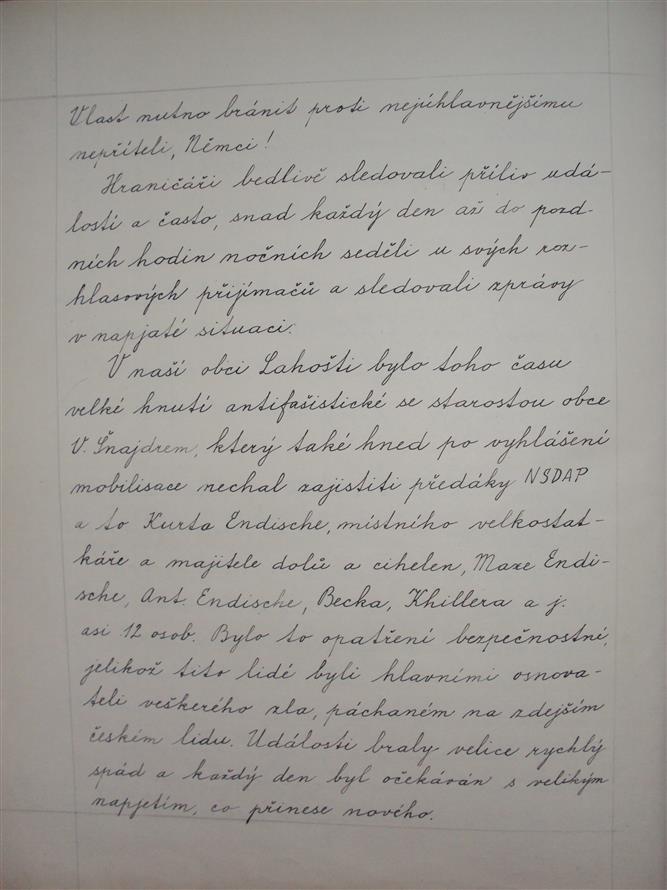 Vlast nutno brániti proti nejúhlavnějšímu
nepříteli, Němci!
Hraničáři bedlivě sledovali příliv udá-
lostí a často, snad každý den až do pozd-
ních hodin nočních seděli u svých roz-
hlasových přijímačů a sledovali zprávy
v napjaté situaci.
V naší obci Lahošti bylo toho času
velké hnutí antifašistické se starostou obce
V. Šnajdrem, který také hned po vyhlášení
mobilisace nechal zajistiti předáky NSDAP
a to Kurta Endische, místního velkostat-
káře a majitele dolů a cihelen, Maxe Endi-
sche, Ant. Endische, Becka, Khillera a j.
asi 12 osob. Bylo to opatření bezpečnostní,
jelikož tito lidé byli hlavními osnova-
teli veškerého zla, páchaném na zdejším
českém lidu. Události braly velice rychlý
spád a každý den byl očekáván s velikým
napjetím, co přinese nového.